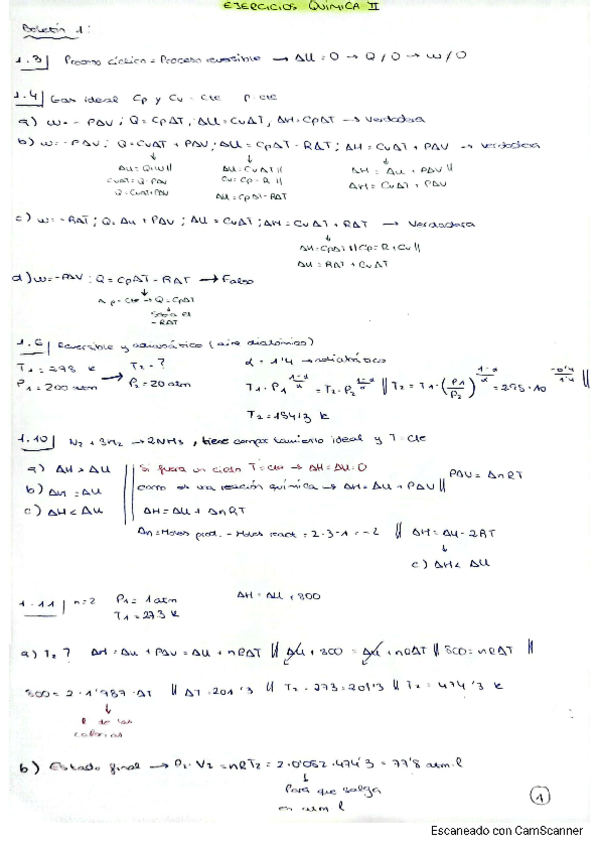 EJERCICIOS QUÍMICA II
Boletín 1:
1.3 Proceso cíclico = Proceso reversible → ΔU = 0 → Q ≠ 0 → W ≠ 0
1.4 Gas ideal Cp y Cv = cte p = cte
a) W = - PΔV ; Q = CpΔT ; ΔU = CvΔT, ΔH = CpΔT → Verdadera
b) W = - PΔV ; Q = CvΔT + PΔV ; ΔU = CpΔT - RΔT ; ΔH = CvΔT + PΔV → Verdadera
ΔU = Q + W || ΔU = CvΔT || ΔH = ΔU + PΔV ||
CvΔT = Q - PΔV Cv = Cp - R || ΔH = CvΔT + PΔV
Q = CvΔT + PΔV ΔU = CpΔT - RΔT
c) W = - RΔT ; Q = ΔU + PΔV ; ΔU = CvΔT ; ΔH = CvΔT + RΔT → Verdadera
ΔH = CpΔT || Cp = R + Cv ||
ΔH = RΔT + CvΔT
d) W = - PΔV ; Q = CpΔT - RΔT → Falso
A p = cte → Q = CpΔT
Sobra el
- RΔT
1.6 Reversible y adiabático (aire diatómico)
T1 = 298 K T2 = ? α = 1'4 → diatómico
P1 = 200 atm → P2 = 20 atm T1 · P1^(1-α/α) = T2 · P2^(1-α/α) || T2 = T1 · (P1/P2)^(1-α/α) = 298 · 10^(-0'4/1'4) ||
T2 = 154'3 K
1.10 N2 + 3H2 → 2NH3 , tiene comportamiento ideal y T = cte
a) ΔH > ΔU Si fuera un ciclo T = cte → ΔH = ΔU = 0
b) ΔH = ΔU como es una reacción química → ΔH = ΔU + PΔV || PΔV = ΔnRT
c) ΔH < ΔU ΔH = ΔU + ΔnRT
Δn = Moles prod. - Moles react = 2 - 3 - 1 = -2 || ΔH = ΔU - 2RT
c) ΔH < ΔU
1.11 n = 2 P1 = 1 atm ΔH = ΔU + 800
T1 = 273 K
a) T2 ? ΔH = ΔU + PΔV = ΔU + nRΔT || ΔU + 800 = ΔU + nRΔT || 800 = nRΔT ||
800 = 2 · 1'987 · ΔT || ΔT = 201'3 || T2 - 273 = 201'3 || T2 = 474'3 K
R de las
calorías
b) Estado final → P2 · V2 = nRT2 = 2 · 0'082 · 474'3 = 77'8 atm · l
Para que salga
en atm l
1
Escaneado con CamScanner